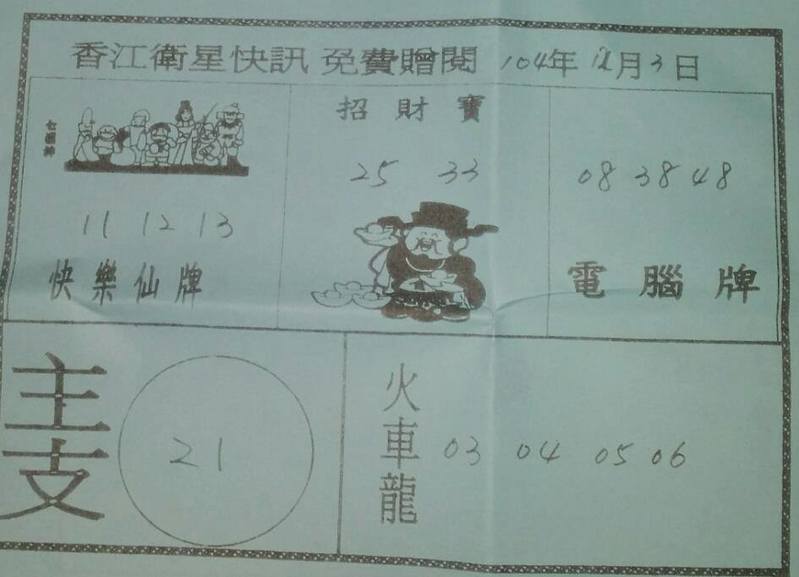 香江衛星快訊 免費贈閱 104年12月3日
招財寶
25 33
08 38 48
11 12 13
快樂仙牌
電腦牌
主支
21
火車龍
03 04 05 06